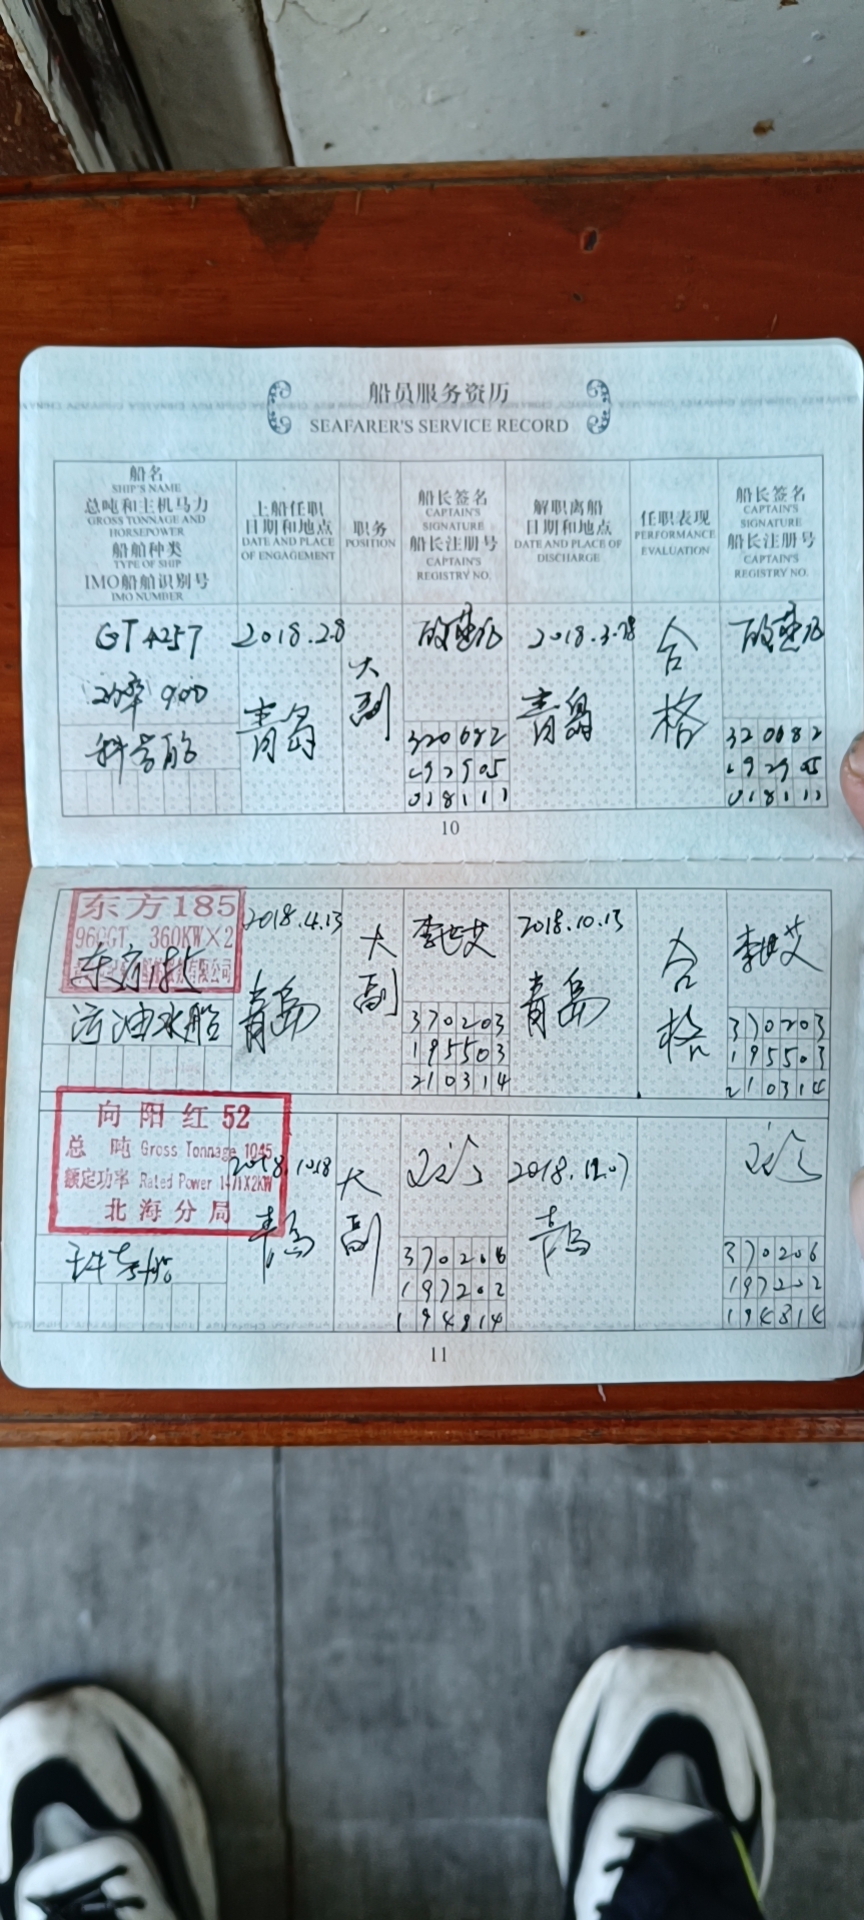 船员服务资历
SEAFARER'S SERVICE RECORD
船名
SHIP'S NAME
总吨和主机马力
GROSS TONNAGE AND
HORSEPOWER
船舶种类
TYPE OF SHIP
IMO船舶识别号
IMO NUMBER
上船任职
日期和地点
DATE AND PLACE
OF ENGAGEMENT
职务
POSITION
船长签名
CAPTAIN'S
SIGNATURE
船长注册号
CAPTAIN'S
REGISTRY NO.
解职离船
日期和地点
DATE AND PLACE OF
DISCHARGE
任职表现
PERFORMANCE
EVALUATION
船长签名
CAPTAIN'S
SIGNATURE
船长注册号
CAPTAIN'S
REGISTRY NO.
GT 4257
功率 900
科考船
2018.2.8
青岛
大副
320682
018111
2018.3.28
青岛
合格
320682
018111
10
东方185
360KW×2
污油水船
2018.4.13
青岛
大副
370203
195503
210314
2018.10.13
青岛
合格
370203
195503
210314
向阳红52
总吨 Gross Tonnage 1045
额定功率 Rated Power
北海分局
科考船
2018.10.18
青岛
大副
370206
197202
2018.12.07
青岛
370206
197202
11